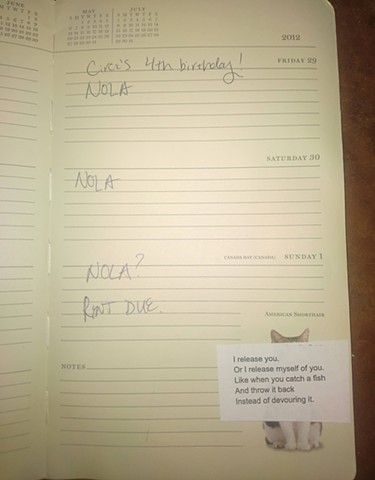 JUNE
MAY
JULY
2012
FRIDAY 29
Circe's 4th birthday!
NOLA
SATURDAY 30
NOLA
SUNDAY 1
NOLA?
RENT DUE.
AMERICAN SHORTHAIR
NOTES
I release you.
Or I release myself of you.
Like when you catch a fish
And throw it back
Instead of devouring it.